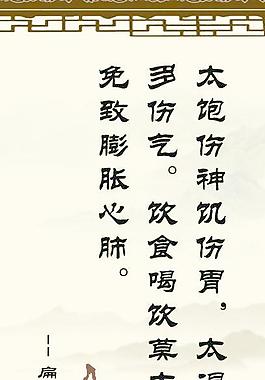 太饱伤神饥伤胃，太渴
多伤气。饮食喝饮莫太
免致膨胀心肺。
——扁